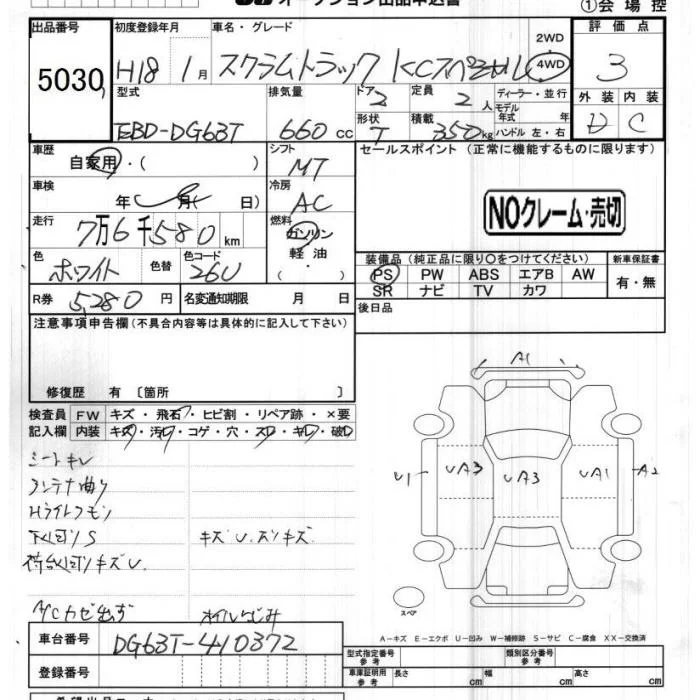 オークション出品申込書
①会場控
出品番号 初度登録年月 車名・グレード 2WD 評価点
5030 H18 1月 スクラムトラック KCスペシャル 4WD 3
型式 排気量 ドア 2 定員 2人 ディーラー・並行 外装 内装
EBD-DG63T 660cc 形状 T 積載 350kg モデル年式 年式 ハンドル 左・右 D C
車歴 自家用・( ) シフト MT セールスポイント(正常に機能するものに限ります)
車検 年 月 日) 冷房 AC
NOクレーム・売切
走行 7万6千580km 燃料 ガソリン 軽油
色 ホワイト 色替 色コード 26U
装備品(純正品に限り○をつけてください) 新車保証書
PS PW ABS エアB AW 有・無
SR ナビ TV カワ
R券 5,280円 名変通知期限 月 日) 後日品
注意事項申告欄(不具合内容等は具体的に記入して下さい)
修復歴 有〔箇所 〕
検査員 FW キズ・飛石・ヒビ割・リペア跡・×要
記入欄 内装 キズ・汚レ・コゲ・穴・スレ・キレ・破レ
シートキレ
アンテナ曲り
Hライトクモリ
下回りS キズU.スリキズ
荷台回リキズU.
A/Cカゼ出ず オイルにじみ
A1
U1 UA3 UA3 UA1 A2
スペア
A-キズ E-エクボ U-凹み W-補修跡 S-サビ C-腐食 XX-交換済
車台番号 DG63T-410372
型式指定番号 参考 類別区分番号 参考
登録番号 車庫証明用 参考 長さ cm 幅 cm 高さ cm